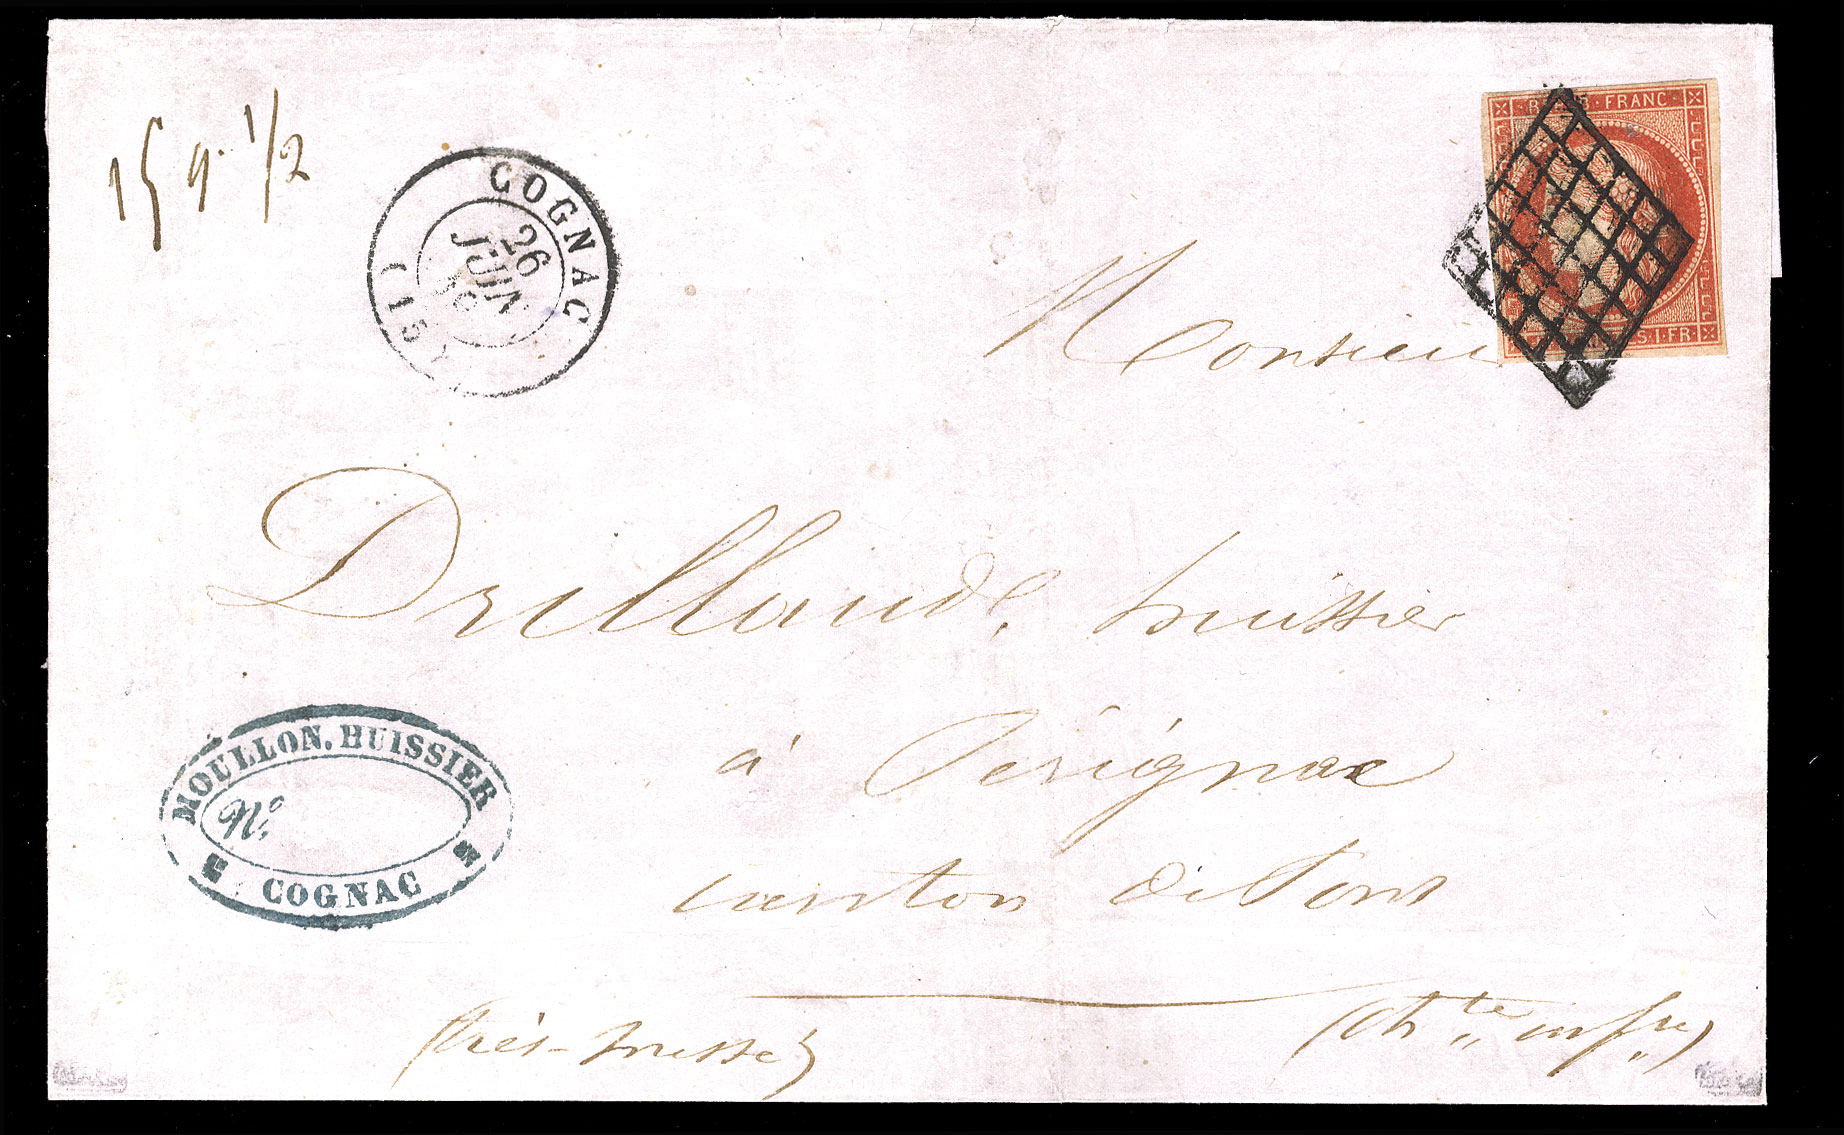 15 g. 1/2
COGNAC
26
JUIN
(15)
FRANC
S.1.FR
Monsieur
Drillaud, huissier
à Pérignac
canton de Pons
(très-pressé)
(Ch.te infre)
MOULLON, HUISSIER
No.
COGNAC